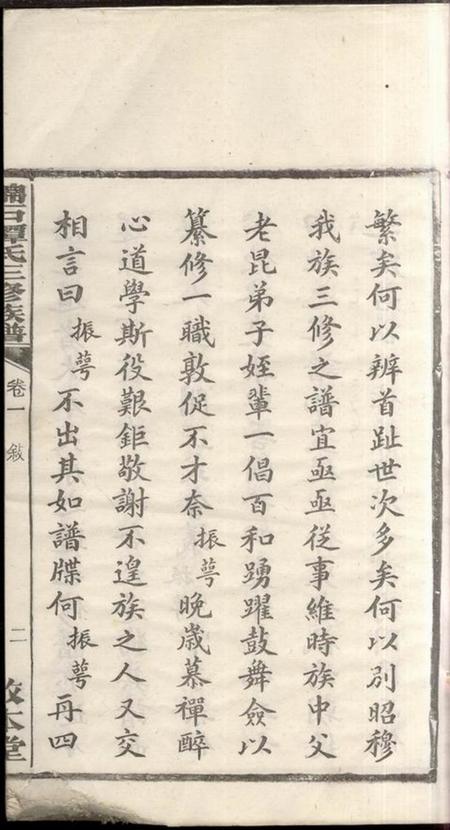 繁矣何以辨首趾世次多矣何以別昭穆
我族三修之譜宜亟亟從事維時族中父
老昆弟子姪輩一倡百和踴躍鼓舞僉以
纂修一職敦促不才奈振蕚晚歲慕禪醉
心道學斯役艱鉅敬謝不遑族之人又交
相言曰振蕚不出其如譜牒何振蕚再四
譚氏三修族譜
卷一
敘
二
本堂